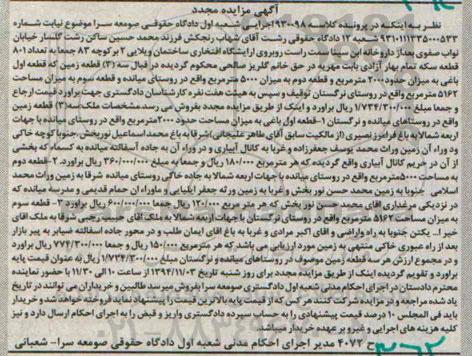 آگهی مزایده مجدد
نظر به اینکه در پرونده کلاسه ۹۳۰۰۹۸ اجرایی شعبه اول دادگاه حقوقی صومعه سرا موضوع نیابت شماره
۹۳۱۰۱۱۱۳۳۵۰۰۰۵۳۳ شعبه ۱۲ دادگاه حقوقی رشت آقای شهاب رنجکش فرزند محمد حسین ساکن رشت گلسار خیابان
نواب صفوی بعد از داروخانه ابن سینا سمت راست روبروی آرایشگاه افتخاری ساختمان ویلایی ۲ بر کوچه ۸۳ جمعا به تعداد ۸۰۱
قطعه سکه تمام بهار آزادی بابت مهریه در حق خانم گلریز صالحی محکوم گردیده در قبال سه (۳) قطعه زمین که قطعه اول
باغی به میزان حدود ۲۰۰۰ مترمربع و قطعه دوم به میزان ۵۰۰۰ مترمربع واقع در روستای میانده و قطعه سوم به میزان مساحت
۵۱۶۲ مترمربع واقع در روستای نرگستان توقیف و سپس به هیئت هفت نفره کارشناسان دادگستری جهت برآورد قیمت ارجاع
و جمعا مبلغ ۱/۷۳۴/۳۰۰/۰۰۰ ریال برآورد و اینک از طریق مزایده مجدد بفروش می رسد. مشخصات ملک سه (۳) قطعه زمین
واقع در روستاهای میانده و نرگستان ۱- قطعه اول باغی به میزان مساحت حدود ۲۰۰۰ مترمربع واقع در روستای میانده با جهات
اربعه شمالا به باغ فرامرز نصیری (از مالکیت سابق آقای طاهر علیجانی) شرقا به باغ محمد اسماعیل نوربخش جنوبا کوچه خاکی
ود وراه آن زمین وراث محمد یوسف جعفرزاده و غربا به کانال آبیاری و در وراه آن به جاده آسفالته میانده به کسماء که بخشی
از آن در حریم کانال آبیاری واقع گردیده که هر مترمربع ۱۸۰/۰۰۰ ریال و جمعا به مبلغ ۳۶۰/۰۰۰/۰۰۰ ریال برآورد. ۲- قطعه دوم
به مساحت ۵۰۰۰ مترمربع واقع در روستای میانده با جهات اربعه شمالا به جاده خاکی روستای میانده شرقا به زمین ورثه
اسلامی جنوبا به زمین محمد حسن نور بخش و غربا به زمین ورثه جعفر ایلیایی و ماوراء آن حمام قدیمی و مدرسه میانده که
در نزدیکی مرغداری آقای محمد حسن نور بخش که هر مترمربع ۱۲۰/۰۰۰ ریال جمعا ۶۰۰/۰۰۰/۰۰۰ ریال برآورد ۳- قطعه سوم
به میزان مساحت ۵۱۶۲ مترمربع واقع در روستای نرگستان با جهات اربعه شمالا به ملک آقای حسین رجبی شرقا به ملک آقای
خیر ا... یکتن جنوبا به راه واراضی و آقای اکبر مرادی و غربا به باغ آقای ایمان طلب و در محور جاده اسفالته ضیابر به پیر بازار
بعد از راه عبوری خاکی منتهی به زمین مورد ارزیابی می باشد. که هر مترمربع ۱۵۰/۰۰۰ ریال و جمعا ۷۷۴/۳۰۰/۰۰۰ ریال برآورد
و در مجموع ارزش هر سه قطعه زمین موصوف در روستاهای میانده و نرگستان مبلغ ۱/۷۳۴/۳۰۰/۰۰۰ ریال به عنوان قیمت پایه
برآورد و تقویم گردیده اینک از طریق مزایده مجدد برای روز شنبه تاریخ ۱۳۹۴/۱۱/۰۳ از ساعت ۱۰ الی ۱۱/۳۰ با حضور نماینده
محترم دادستان در اجرای احکام مدنی شعبه اول دادگستری صومعه سرا بفروش میرسد طالبین و خریداران می توانند در تاریخ
یاد شده مراجعه و در مزایده شرکت کنند هر کس که از قیمت پایه بالاترین قیمت را پیشنهاد نماید فروخته خواهد شد و خریدار
باید فی المجلس ۱۰ درصد قیمت پیشنهادی را به حساب سپرده دادگستری واریز و قبض را به اجرای احکام ارسال دارد و نیز
کلیه هزینه های اجرایی و غیره بر عهده خریدار میباشد
ح ۴۰۷۲ مدیر اجرای احکام مدنی شعبه اول دادگاه حقوقی صومعه سرا- شعبانی